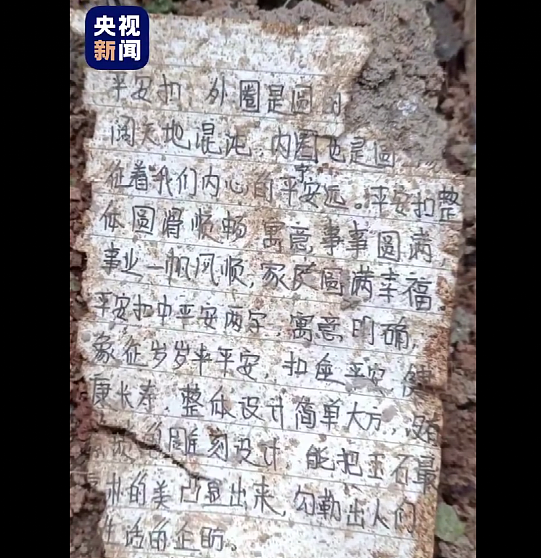 央视
新闻
平安扣，外圈是圆的
阔天地混沌，内圈也是圆
征着我们内心的平安宁远。平安扣整
体圆滑顺畅，寓意事事圆满，
事业一帆风顺，家庭圆满幸福。
平安扣中平安两字，寓意明确，
象征岁岁平平安，扣座平安，健
康长寿，整体设计简单大方，没有
雕刻设计，能把玉石最
的美凸显出来，勾勒出人们
生活的企盼。